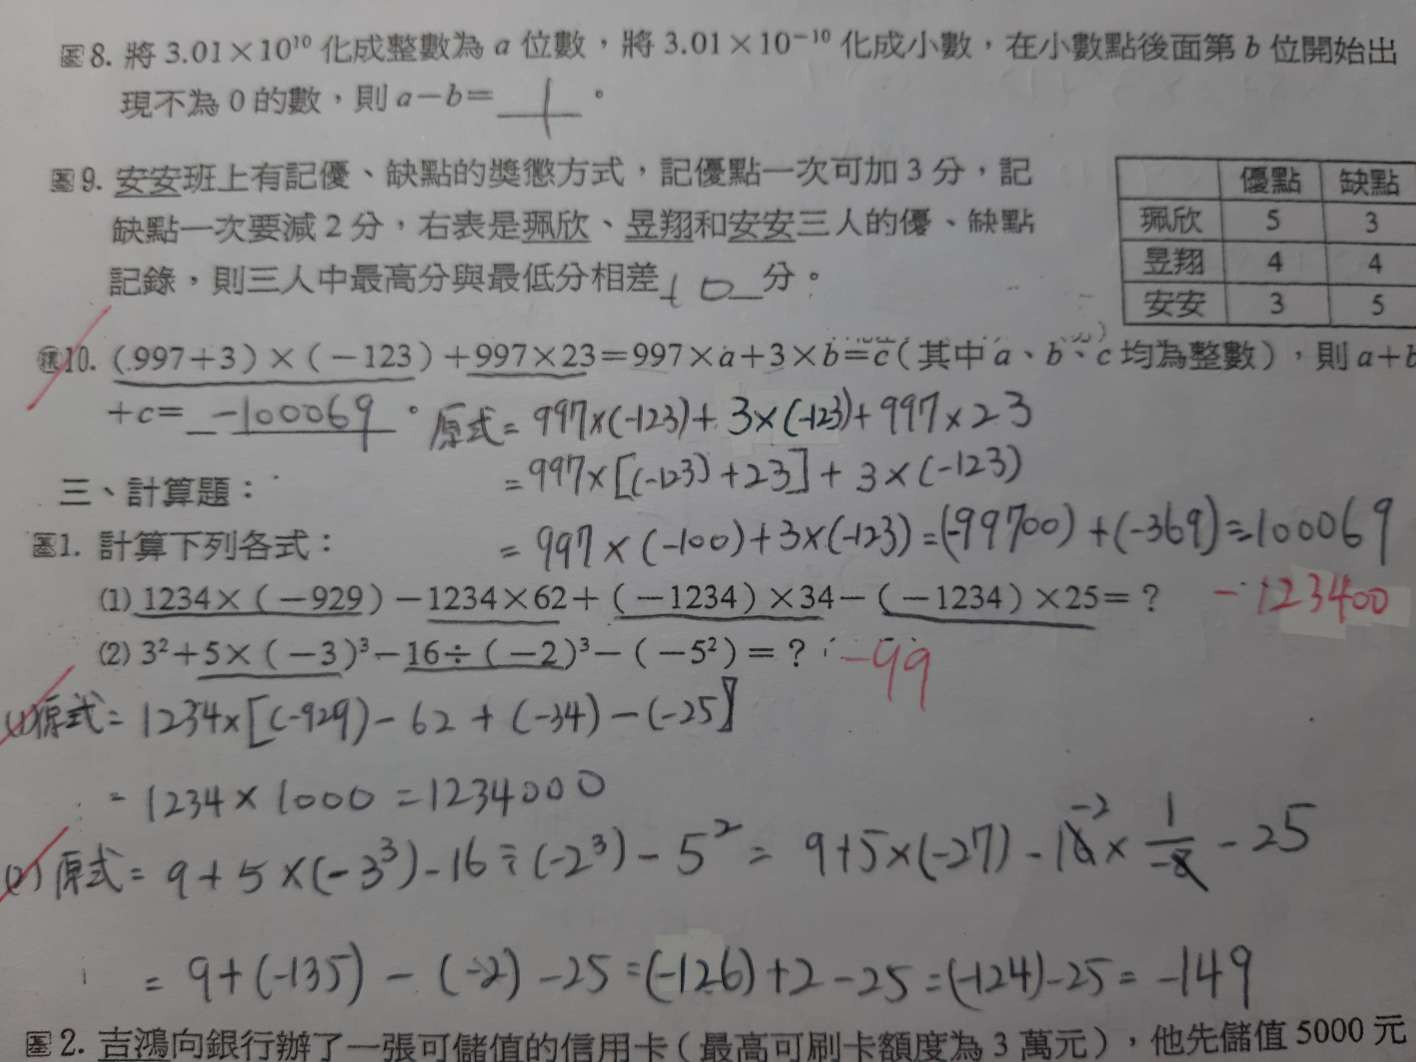 圖8. 將 3.01×10¹⁰ 化成整數為 a 位數，將 3.01×10⁻¹⁰ 化成小數，在小數點後面第 b 位開始出
現不為 0 的數，則 a－b＝ 1 。
圖9. 安安班上有記優、缺點的獎懲方式，記優點一次可加 3 分，記
缺點一次要減 2 分，右表是珮欣、昱翔和安安三人的優、缺點
記錄，則三人中最高分與最低分相差 10 分。
優點 缺點
珮欣 5 3
昱翔 4 4
安安 3 5
10. (997+3)×(−123)+997×23=997×a+3×b=c(其中 a、b、c 均為整數)，則 a+b
+c= −100069 。 原式= 997×(-123)+ 3×(-123)+997×23
= 997×[(-123)+23]+ 3×(-123)
三、計算題：
= 997×(-100)+3×(-123)=(-99700)+(-369)=100069
圖1. 計算下列各式：
(1) 1234×(−929)−1234×62+(−1234)×34−(−1234)×25=？ -123400
(2) 3²+5×(−3)³−16÷(−2)³−(−5²)=？ -99
(1)原式= 1234×[(-929)-62+(-34)-(-25)]
= 1234×1000=1234000
(2)原式= 9+5×(-3³)-16÷(-2³)-5² = 9+5×(-27)-16 -2 × 1/-8 -25
= 9+(-135)-(-2)-25=(-126)+2-25=(-124)-25=-149
圖2. 吉鴻向銀行辦了一張可儲值的信用卡(最高可刷卡額度為 3 萬元)，他先儲值 5000 元